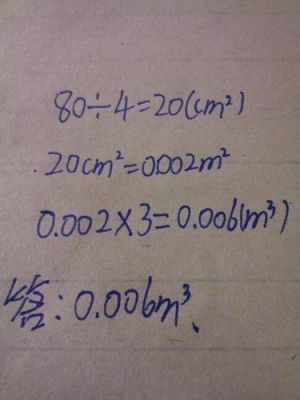 80÷4=20(cm²)
20cm²=0.002m²
0.002×3=0.006(m³)
答:0.006m³、